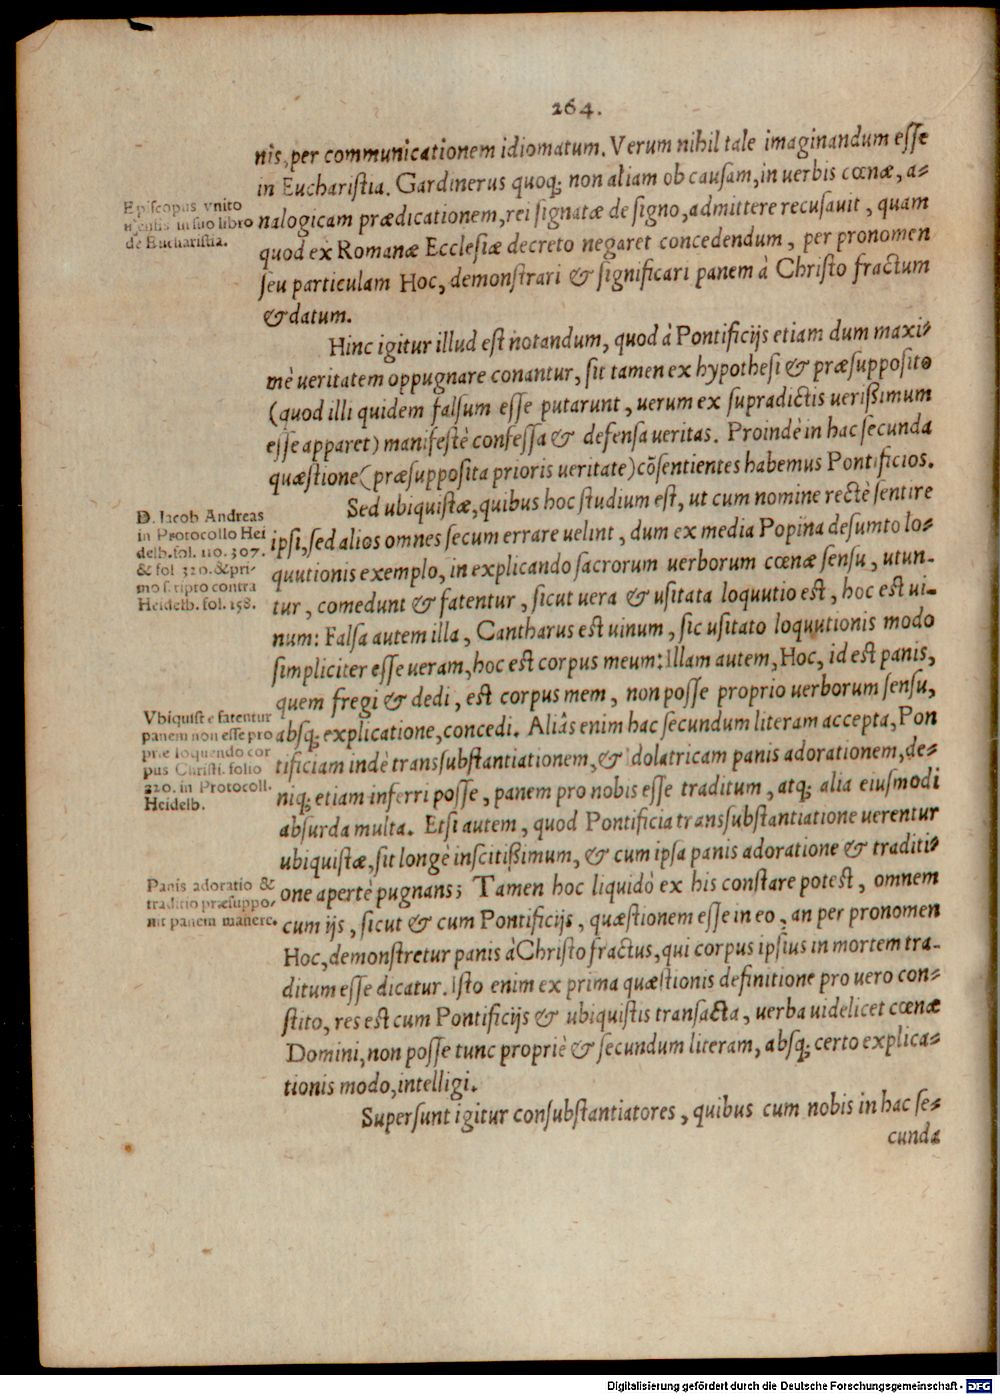 264.
nis, per communicationem idiomatum. Verum nihil tale imaginandum esse
in Eucharistia. Gardinerus quoq; non aliam ob causam, in uerbis cœnæ, a-
nalogicam prædicationem, rei signatæ de signo, admittere recusauit, quam
quod ex Romanæ Ecclesiæ decreto negaret concedendum, per pronomen
seu particulam Hoc, demonstrari & significari panem à Christo fractum
& datum.
Episcopus vnito
niensis in suo libro
de Eucharistia.
Hinc igitur illud est notandum, quod à Pontificijs etiam dum maxi-
mè ueritatem oppugnare conantur, sit tamen ex hypothesi & præsupposito
(quod illi quidem falsum esse putarunt, uerum ex supradictis uerißimum
esse apparet) manifestè confessa & defensa ueritas. Proindè in hac secunda
quæstione (præsupposita prioris ueritate) cõsentientes habemus Pontificios.
Sed ubiquistæ, quibus hoc studium est, ut cum nomine rectè sentire
ipsi, sed alios omnes secum errare uelint, dum ex media Popina desumto lo-
quutionis exemplo, in explicando sacrorum uerborum cœnæ sensu, utun-
tur, comedunt & fatentur, sicut uera & usitata loquutio est, hoc est ui-
num: Falsa autem illa, Cantharus est uinum, sic usitato loquutionis modo
simpliciter esse ueram, hoc est corpus meum: Illam autem, Hoc, id est panis,
quem fregi & dedi, est corpus mem, non posse proprio uerborum sensu,
absq; explicatione, concedi. Aliâs enim hac secundum literam accepta, Pon
tificiam indè transsubstantiationem, & idolatricam panis adorationem, de-
niq; etiam inferri posse, panem pro nobis esse traditum, atq; alia eiusmodi
absurda multa. Etsi autem, quod Pontificia transsubstantiatione uerentur
ubiquistæ, sit longè inscitißimum, & cum ipsa panis adoratione & traditi-
one apertè pugnans; Tamen hoc liquidò ex his constare potest, omnem
cum ijs, sicut & cum Pontificijs, quæstionem esse in eo, an per pronomen
Hoc, demonstretur panis à Christo fractus, qui corpus ipsius in mortem tra-
ditum esse dicatur. Isto enim ex prima quæstionis definitione pro uero con-
stito, res est cum Pontificijs & ubiquistis transacta, uerba uidelicet cœnæ
Domini, non posse tunc propriè & secundum literam, absq; certo explica-
tionis modo, intelligi.
D. Iacob Andreas
in Protocollo Hei
delb. fol. 110. 307.
& fol 320. & pri-
mo scripto contra
Heidelb. fol. 158.
Vbiquistæ fatentur
panem non esse pro
priæ loquendo cor
pus Christi. folio
320. in Protocoll.
Heidelb.
Panis adoratio &
traditio præsuppo-
nit panem manere.
Supersunt igitur consubstantiatores, quibus cum nobis in hac se-
cunda
Digitalisierung gefördert durch die Deutsche Forschungsgemeinschaft - DFG